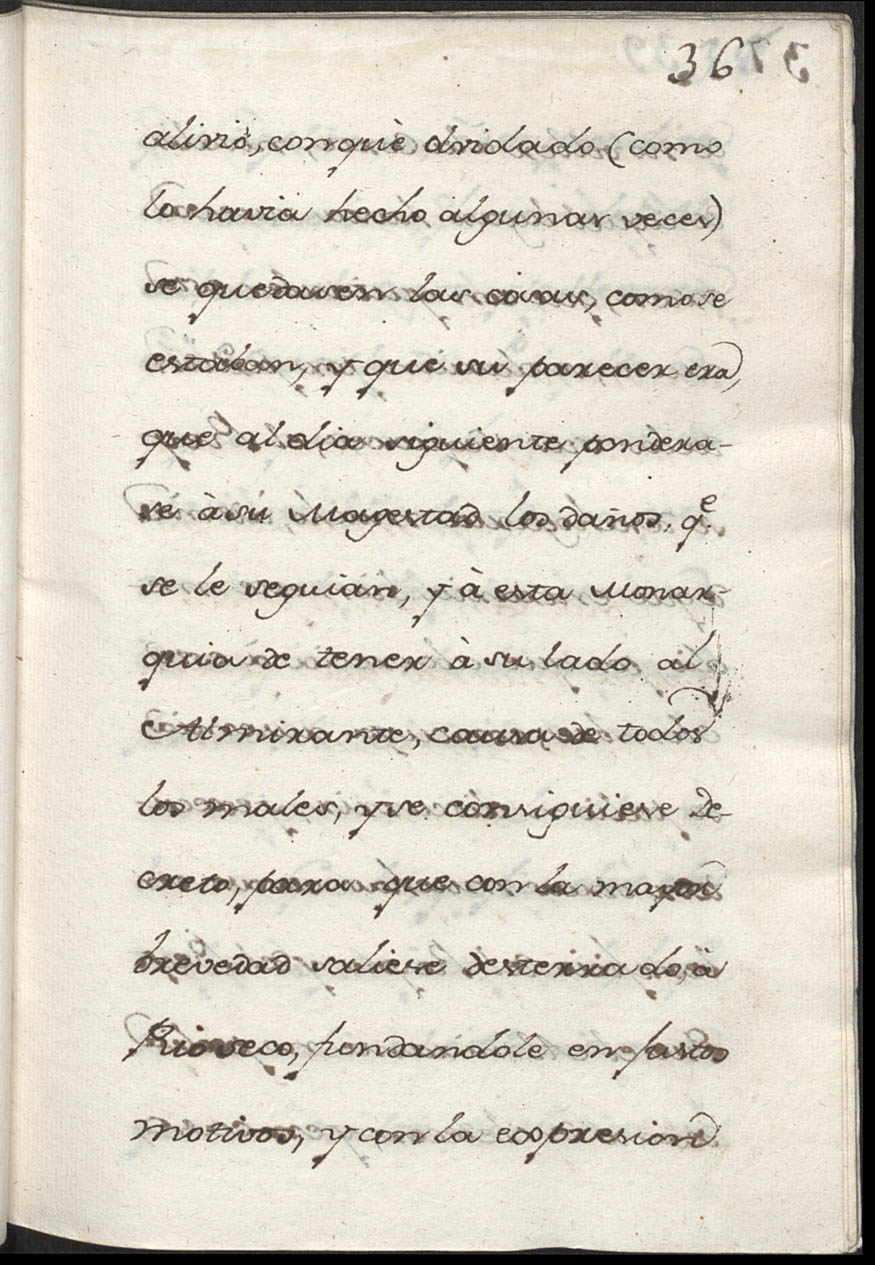 36
alivio, conquè olvidado (como
lo havia hecho algunas veces)
se quedasen las cosas, como se
estaban, y que su parecer era,
que al dia siguiente pondera-
se à su Magestad los daños, q.e
se le seguian, y à esta Monar-
quia de tener à su lado al
Almirante, causa de todos
los males, y se consiguiese De-
creto, para que con la mayor
brevedad saliese desterrado, à
Rioseco, fundandole en justos
motivos, y con la expresion